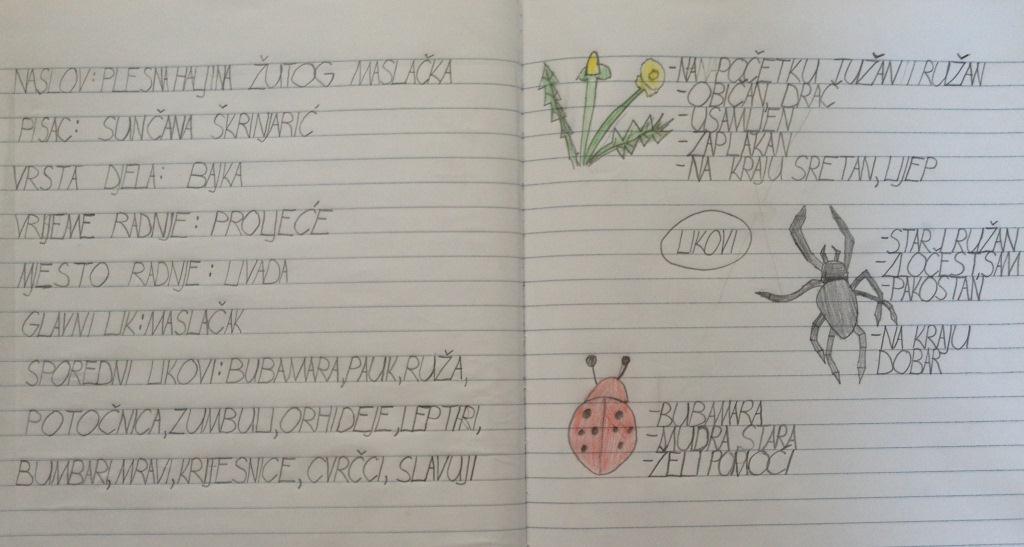 NASLOV: PLESNA HALJINA ŽUTOG MASLAČKA
PISAC: SUNČANA ŠKRINJARIĆ
VRSTA DJELA: BAJKA
VRIJEME RADNJE: PROLJEĆE
MJESTO RADNJE: LIVADA
GLAVNI LIK: MASLAČAK
SPOREDNI LIKOVI: BUBAMARA, PAUK, RUŽA,
POTOČNICA, ZUMBULI, ORHIDEJE, LEPTIRI,
BUMBARI, MRAVI, KRIJESNICE, CVRČCI, SLAVUJI
-NA POČETKU TUŽAN I RUŽAN
-OBIČAN, DRAČ
-USAMLJEN
-ZAPLAKAN
-NA KRAJU SRETAN, LIJEP
LIKOVI
-STAR I RUŽAN
-ZLOČEST, SAM
-PAKOSTAN
-NA KRAJU
DOBAR
-BUBAMARA
-MUDRA, STARA
-ŽELI POMOĆI